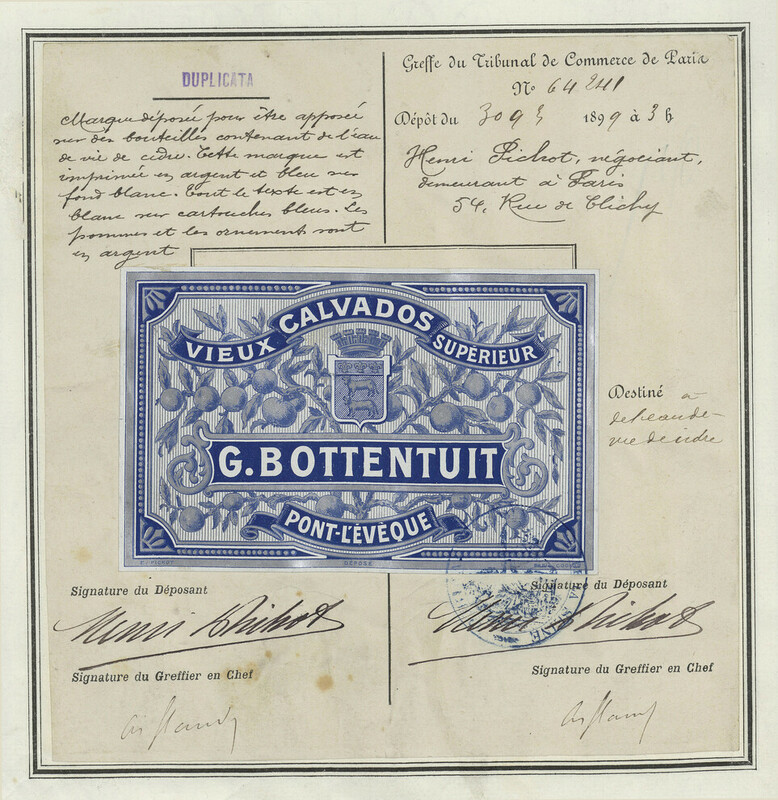 DUPLICATA
Marque déposée pour être apposée
sur des bouteilles contenant de l'eau
de vie de cidre. Cette marque est
imprimée en argent et bleu sur
fond blanc. Tout le texte est en
blanc sur cartouches bleus. Les
pommes et les ornements sont
en argent
Greffe du Tribunal de Commerce de Paris
No 64241
Dépôt du 30 1899 à 3 h
Henri Pichot, négociant,
demeurant à Paris
54, Rue de Clichy
VIEUX CALVADOS SUPÉRIEUR
G. BOTTENTUIT
PONT-L'ÉVÊQUE
DÉPOSÉ
Destiné à
de l'eau de
vie de cidre
Signature du Déposant
Henri Pichot
Signature du Greffier en Chef
Signature du Déposant
Henri Pichot
Signature du Greffier en Chef